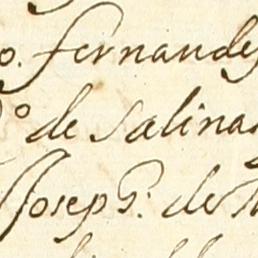 o. fernandez
º de salinas
Joseph: de